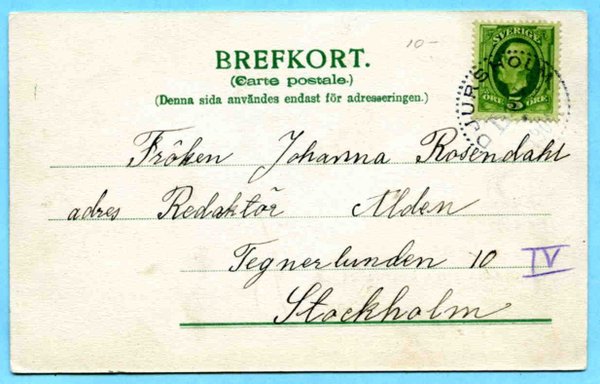 10-
BREFKORT.
(Carte postale.)
(Denna sida användes endast för adresseringen.)
SVERIGE
5
ÖRE ÖRE
DJURSHOLM
Fröken Johanna Rosendahl
adres Redaktör Alden
Tegnerlunden 10 IV
Stockholm